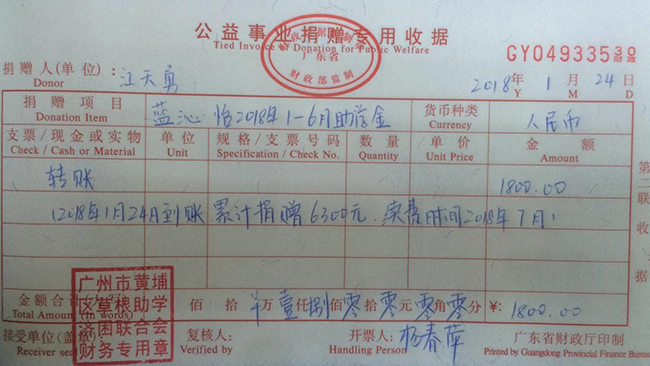 公益事业捐赠专用收据
Tied Invoice of Donation for Public Welfare
广东省
财政部监制
GY04933530
捐赠人(单位): 江天勇 2018年 1月 24日
Donor Y M D
捐赠项目 蓝沁怡2018年1-6月助学金 货币种类 人民币
Donation Item Currency
支票/现金或实物 单位 规格/支票号码 数量 单价 金额
Check / Cash or Material Unit Specification / Check No. Quantity Unit Price Amount
转账 1800.00
(2018年1月24日到账 累计捐赠6300元, 续费时间2018年7月)
金额合计(大写) 佰 拾 ¥万壹仟捌佰零拾零元零角零分 ¥: 1800.00
Total Amount (in words)
接受单位(盖章): 复核人: 开票人: 杨春萍 广东省财政厅印制
Receiver seal Verified by Handling Person Printed by Guangdong Provincial Finance Bureau
广州市黄埔
区草根助学
济困联合会
财务专用章
第二联收据